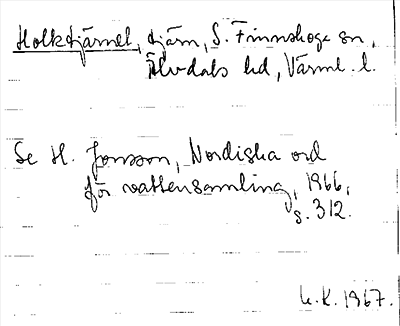 Holktjärnet, tjärn, S. Finnskoga sn,
Älvdals hd, Värml. l.
Se H. Jonsson, Nordiska ord
för vattensamling, 1966,
s. 312.
U.K. 1967.